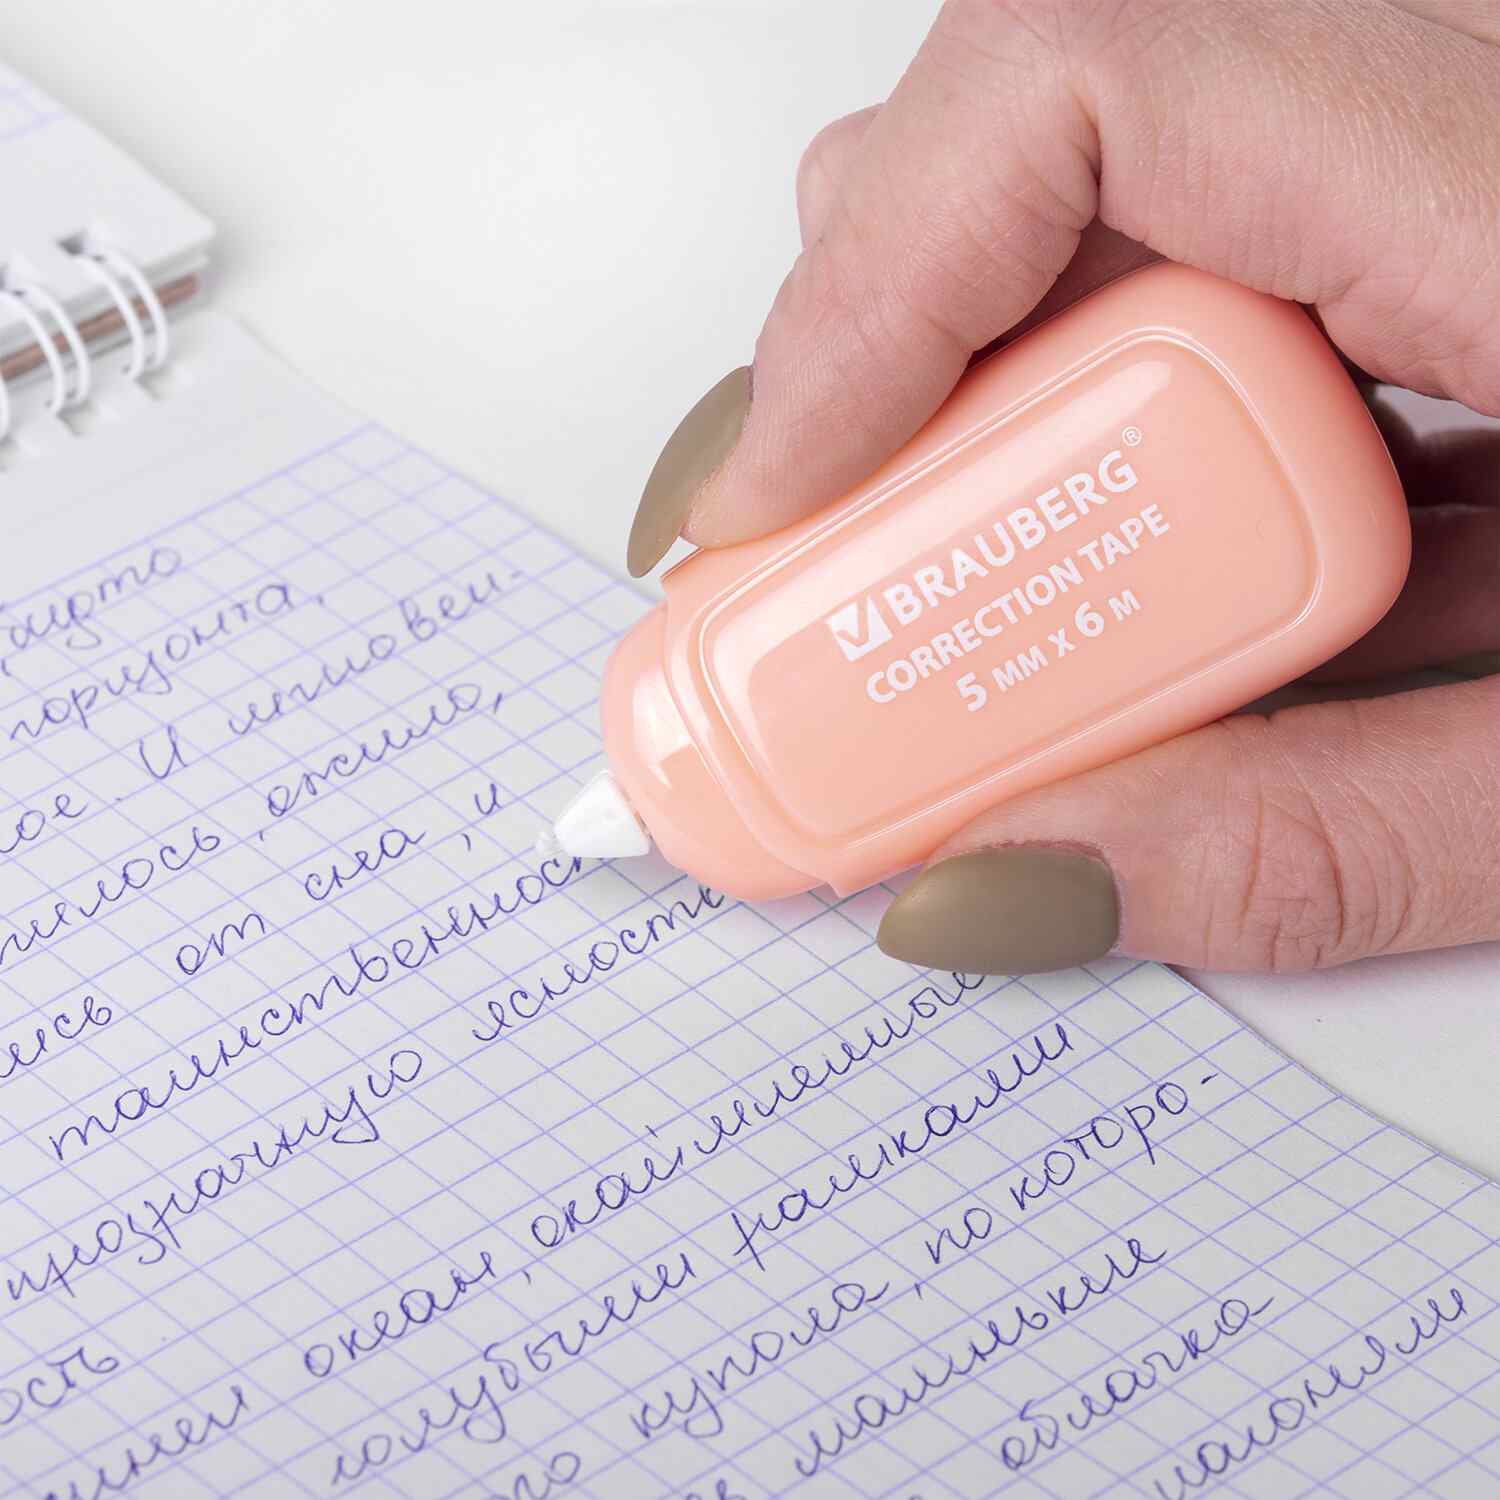 BRAUBERG®
CORRECTION TAPE
5 мм x 6 м
будто
горизонта,
ное. И мгновен-
лилось, ожило,
лись от сна, и
таинственност
прозрачную ясность
ость
синем океан, окаймленные
голубыми рамками
го купола, по которо-
маленькие
облачка